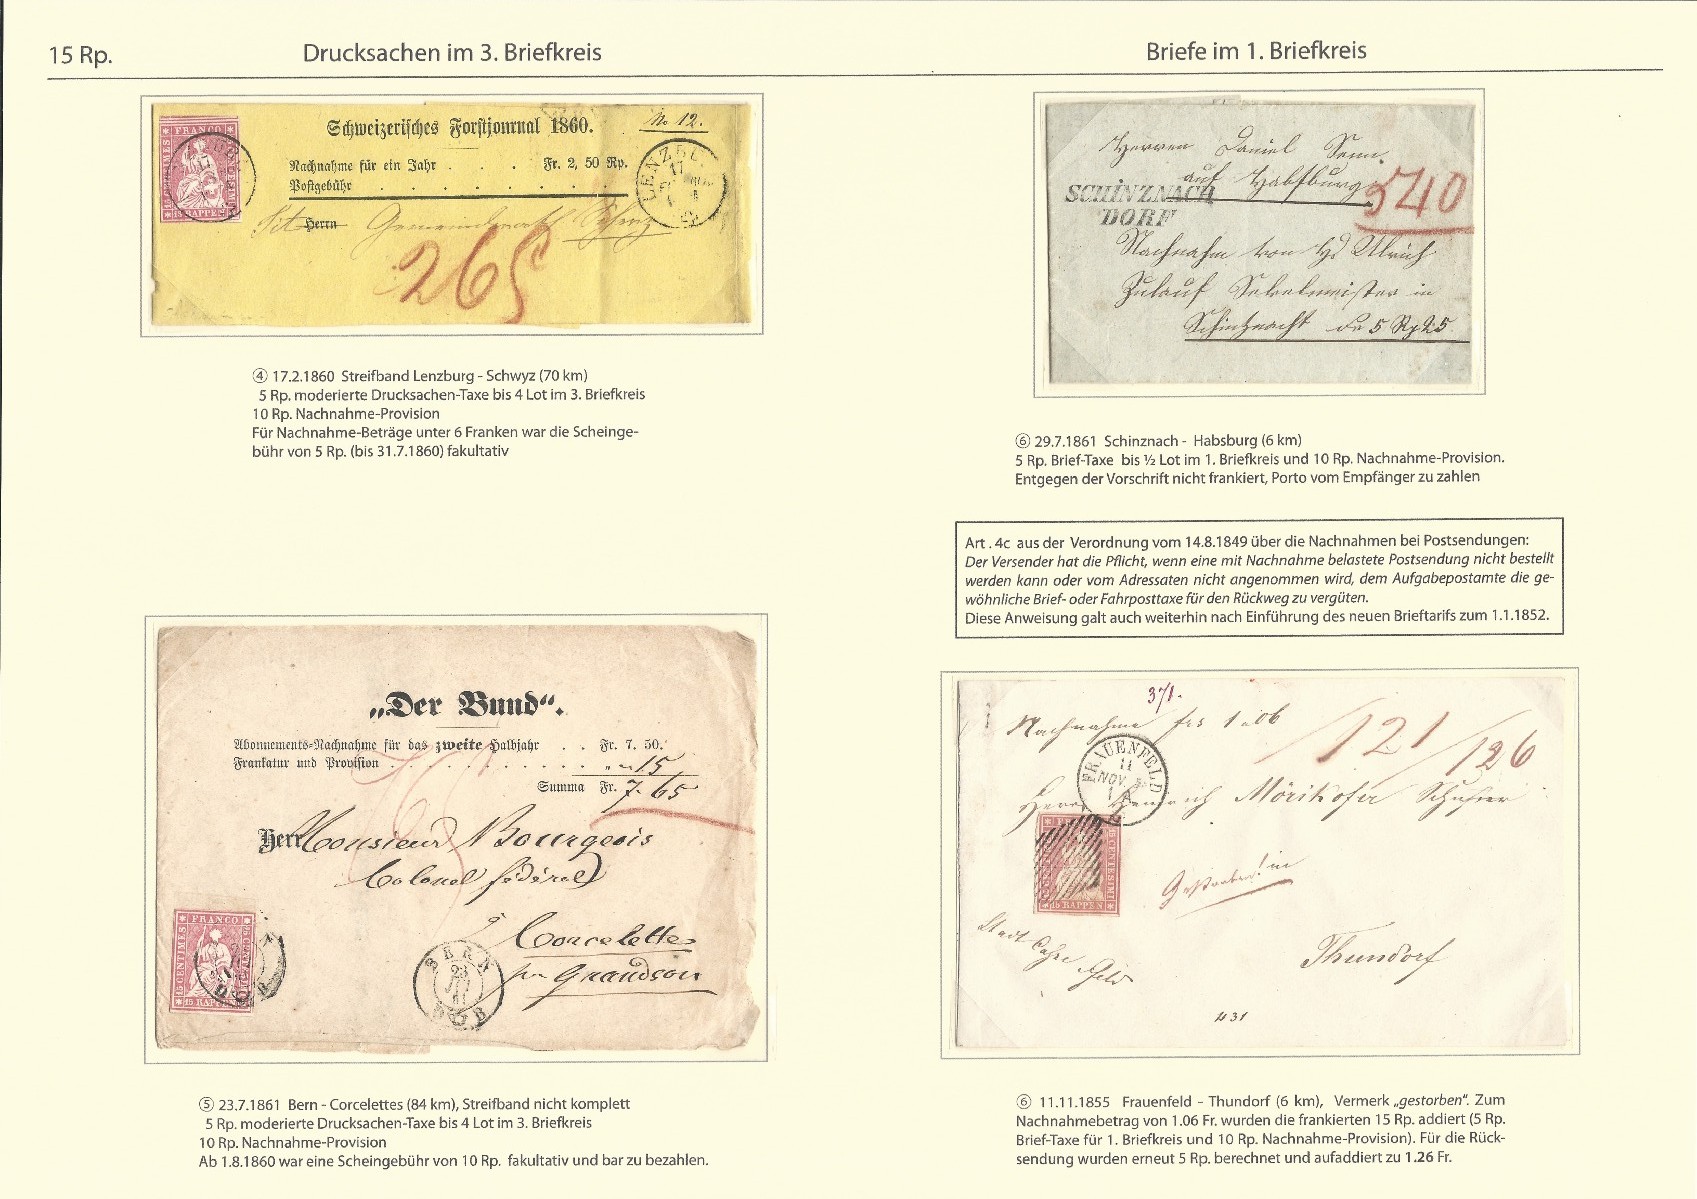 15 Rp.
Drucksachen im 3. Briefkreis
Briefe im 1. Briefkreis
Schweizerisches Forstjournal 1860.
No 12.
Nachnahme für ein Jahr . . . . Fr. 2, 50 Rp.
Postgebühr . . . . . . . .
Herrn
265
FRANCO
15 RAPPEN
LENZB
17
④ 17.2.1860 Streifband Lenzburg - Schwyz (70 km)
5 Rp. moderierte Drucksachen-Taxe bis 4 Lot im 3. Briefkreis
10 Rp. Nachnahme-Provision
Für Nachnahme-Beträge unter 6 Franken war die Scheinge-
bühr von 5 Rp. (bis 31.7.1860) fakultativ
„Der Bund“.
Abonnements-Nachnahme für das zweite Halbjahr . . Fr. 7. 50.
Frankatur und Provision . . . . . . . . . . 15
Summa Fr. 7. 65
Herr Monsieur Bourgeois
Colonel fédéral
à Corcelettes
pr Grandson
FRANCO
15 CENTIMES
15 RAPPEN
BERN
23
⑤ 23.7.1861 Bern - Corcelettes (84 km), Streifband nicht komplett
5 Rp. moderierte Drucksachen-Taxe bis 4 Lot im 3. Briefkreis
10 Rp. Nachnahme-Provision
Ab 1.8.1860 war eine Scheingebühr von 10 Rp. fakultativ und bar zu bezahlen.
Herren Daniel Senn
auf Habsburg
540
SCHINZNACH
DORF
Nachnahm von Hr Ulrich
Zulauf Sekelmeister in
Schinznacht Fr 5 Rp 25
⑥ 29.7.1861 Schinznach - Habsburg (6 km)
5 Rp. Brief-Taxe bis ½ Lot im 1. Briefkreis und 10 Rp. Nachnahme-Provision.
Entgegen der Vorschrift nicht frankiert, Porto vom Empfänger zu zahlen
Art . 4c aus der Verordnung vom 14.8.1849 über die Nachnahmen bei Postsendungen:
Der Versender hat die Pflicht, wenn eine mit Nachnahme belastete Postsendung nicht bestellt
werden kann oder vom Adressaten nicht angenommen wird, dem Aufgabepostamte die ge-
wöhnliche Brief- oder Fahrposttaxe für den Rückweg zu vergüten.
Diese Anweisung galt auch weiterhin nach Einführung des neuen Brieftarifs zum 1.1.1852.
371.
Nachnahme frs 1.06
121
126
FRAUENFELD
11
NOV.
Herr Heinrich Mörikofer Schuster
15 RAPPEN
Gestorben! in
Thundorf
431
⑥ 11.11.1855 Frauenfeld - Thundorf (6 km), Vermerk „gestorben“. Zum
Nachnahmebetrag von 1.06 Fr. wurden die frankierten 15 Rp. addiert (5 Rp.
Brief-Taxe für 1. Briefkreis und 10 Rp. Nachnahme-Provision). Für die Rück-
sendung wurden erneut 5 Rp. berechnet und aufaddiert zu 1.26 Fr.